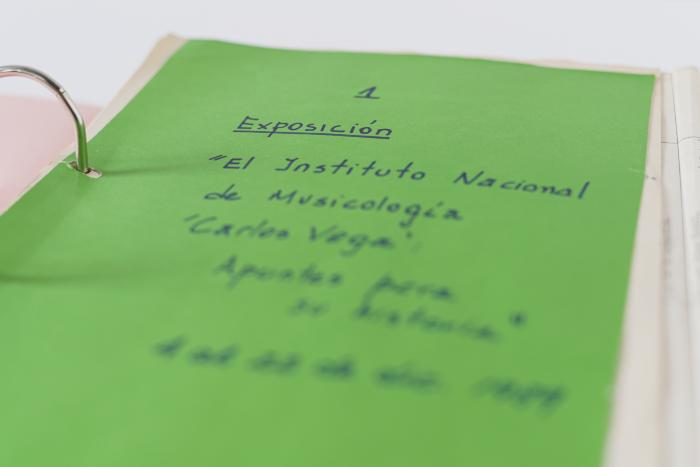 1
Exposición
"El Instituto Nacional
de Musicología
'Carlos Vega':
Apuntes para
su historia"
de dic.